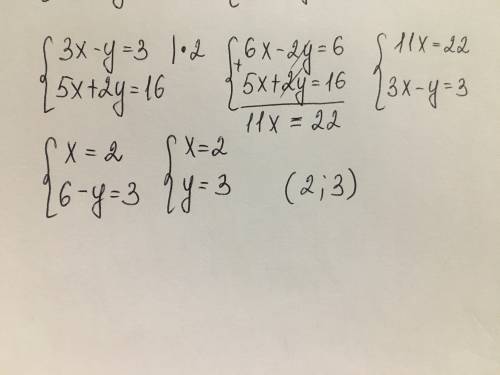 {3x-y=3 |·2
5x+2y=16
{6x-2y=6
+
5x+2y=16
11x=22
{11x=22
3x-y=3
{x=2
6-y=3
{x=2
y=3
(2;3)